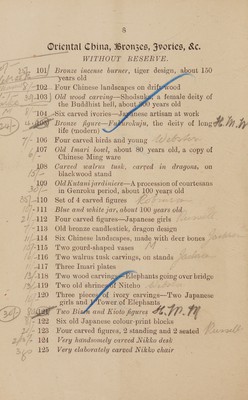 5
Oriental China, Bronzes, Ivories, &c.
WITHOUT RESERVE.
101 Bronze incense burner, tiger design, about 150
years old
102 Four Chinese landscapes on driftwood
103 Old wood carving—Shodsuka, a female deity of
the Buddhist hell, about 100 years old
104 Six carved ivories—Japanese artisan at work
105 Bronze figure—Fukurokuju, the deity of long H.M.M
life (modern)
106 Four carved birds and young
107 Old Imari bowl, about 80 years old, a copy of
Chinese Ming ware
108 Carved walnut tusk, carved in dragons, on
blackwood stand
109 Old Kutani jardiniere—A procession of courtesans
in Genroku period, about 100 years old
110 Set of 4 carved figures
111 Blue and white jar, about 100 years old
112 Four carved figures—Japanese girls
113 Old bronze candlestick, dragon design
114 Six Chinese landscapes, made with deer bones
115 Two gourd-shaped vases
116 Two walrus tusk carvings, on stands
117 Three Imari plates
118 Two wood carvings—Elephants going over bridge
119 Two old shrines of Nitcho
120 Three pieces of ivory carvings—Two Japanese
girls and Tower of Elephants
121 Two Bizen and Kioto figures H.M.M
122 Six old Japanese colour-print blocks
123 Four carved figures, 2 standing and 2 seated Russell
124 Very handsomely carved Nikko desk
125 Very elaborately carved Nikko chair